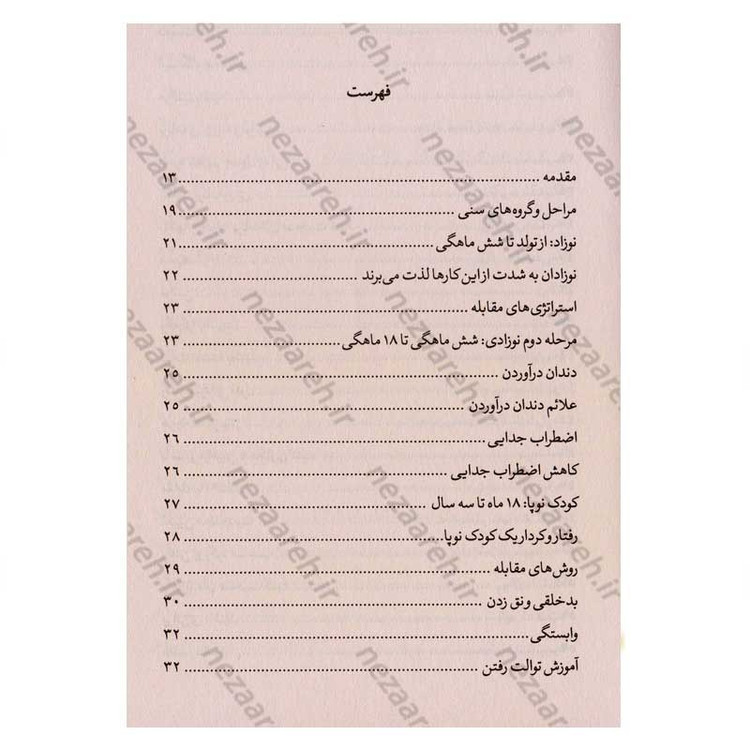 فهرست
مقدمه ........ ۱۳
مراحل و گروه‌های سنی ........ ۱۹
نوزاد: از تولد تا شش ماهگی ........ ۲۱
نوزادان به شدت از این کارها لذت می‌برند ........ ۲۲
استراتژی‌های مقابله ........ ۲۳
مرحله دوم نوزادی: شش ماهگی تا ۱۸ ماهگی ........ ۲۳
دندان درآوردن ........ ۲۵
علائم دندان درآوردن ........ ۲۵
اضطراب جدایی ........ ۲۶
کاهش اضطراب جدایی ........ ۲۶
کودک نوپا: ۱۸ ماه تا سه سال ........ ۲۷
رفتار و کردار یک کودک نوپا ........ ۲۸
روش‌های مقابله ........ ۲۹
بدخلقی و نق زدن ........ ۳۰
وابستگی ........ ۳۲
آموزش توالت رفتن ........ ۳۲
nezaareh.ir